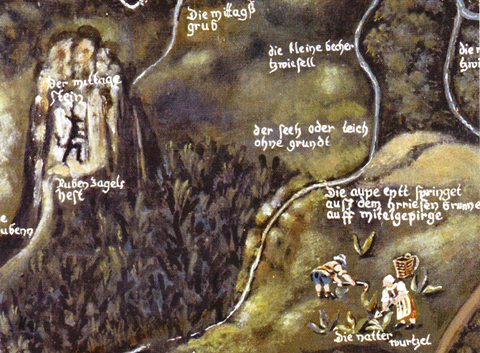 Die mittagß
grub
die kleine becher
tzwiesell
die
tzwie
Der mittage
stein
der seeh oder teich
ohne grundt
Ruben Zagels
Nest
Die aupe entt springet
auß dem hrriesen Brunne
auff mitelgepirge
ubenn
Die natter
wurtzel